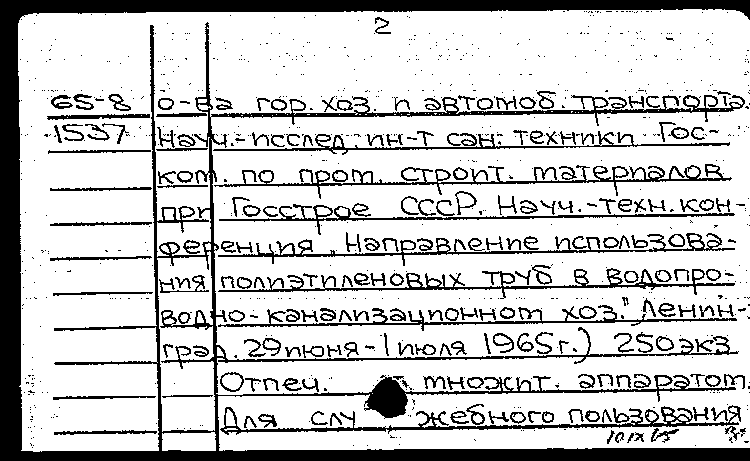 2
65-8 о-ва гор. хоз. и автомоб. транспорта.
1537 Науч.-исслед. ин-т сан. техники Гос-
ком. по пром. строит. материалов
при Госстрое СССР. Науч.-техн. кон-
ференция „Направление использова-
ния полиэтиленовых труб в водопро-
водно-канализационном хоз." Ленин-
град. 29 июня-1 июля 1965 г.) 250 экз
Отпеч. множит. аппаратом
Для служебного пользования
10 IX 65